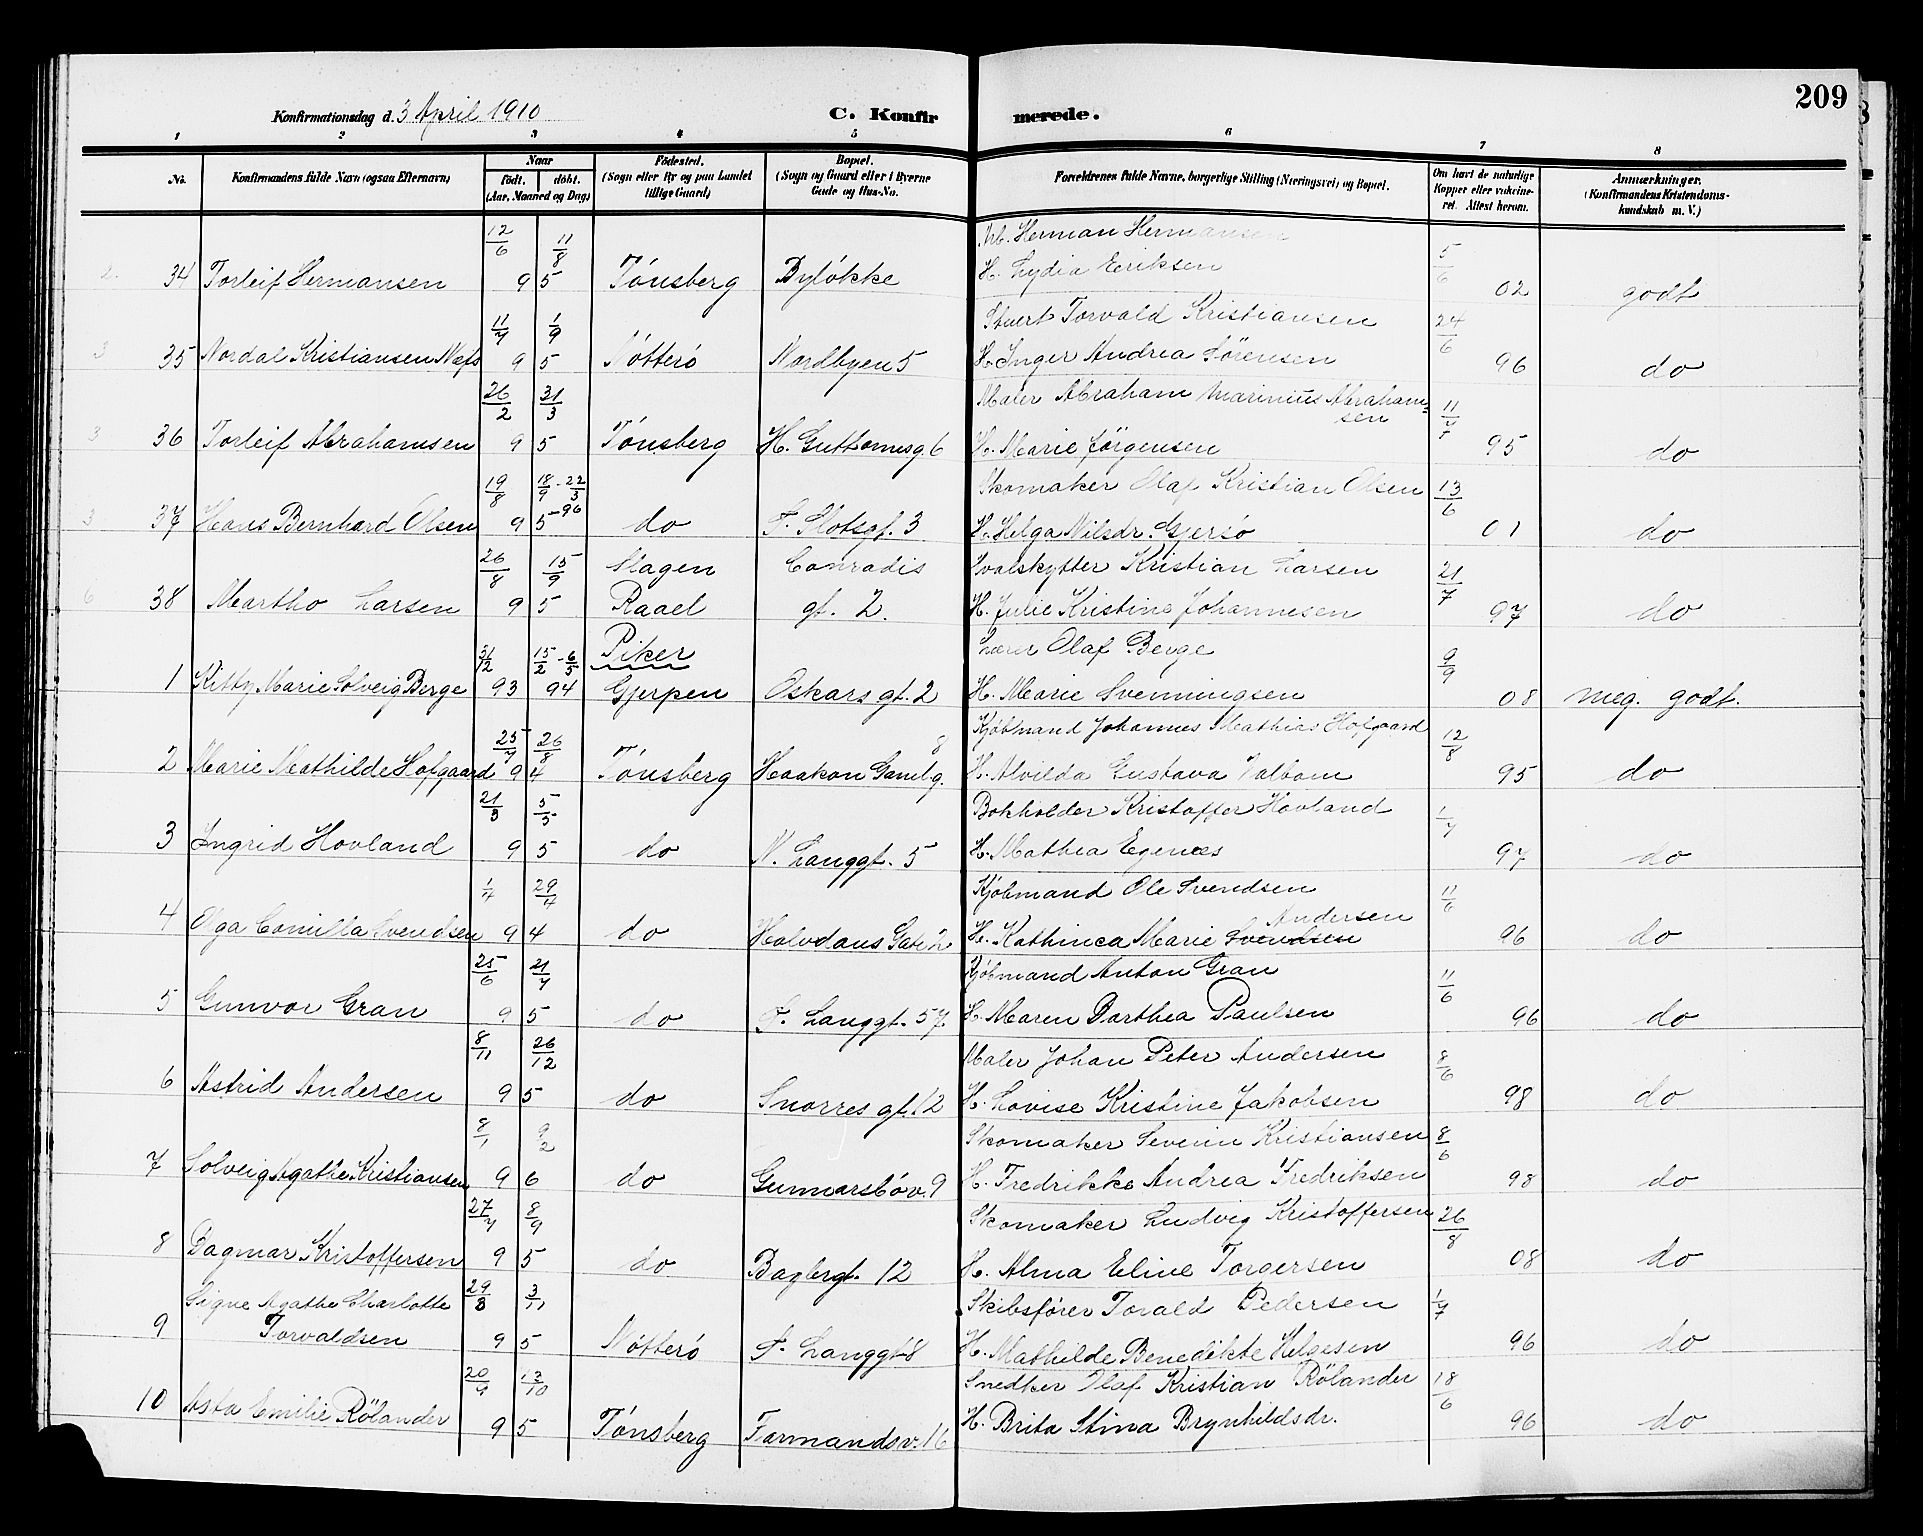 209
Konfirmationsdag d. 3 April 1910 C. Konfirmerede.
1 2 3 4 5 6 7 8
No. Konfirmandens fulde Navn (ogsaa Efternavn) Naar født. døbt. (Aar, Maaned og Dag) Fødested. (Sogn eller By og paa Landet tillige Gaard) Bopæl. (Sogn og Gaard eller i Byerne Gade og Hus-No. Forældrenes fulde Navne, borgerlige Stilling (Næringsvei) og Bopæl. Om havt de naturlige Kopper eller vaccineret. Attest herom. Anmærkninger. (Konfirmandens Kristendomskundskab m. V.)
12/6 11/8 Arb. Herman Hermansen 5/6
2. 34 Torleif Hermansen 9 5 Tønsberg Byløkke H. Lydia Eriksen 02 godt
11/7 1/9 Stuert Torvald Kristiansen 24/6
3 35 Nordal Kristiansen Næss 9 5 Nøtterø Nordbyen 5 H. Inger Andrea Sørensen 96 do
26/2 31/3 Maler Abraham Marinius Abrahamsen 11/7
3 36 Torleif Abrahamsen 9 5 Tønsberg H. Guttormsg. 6 H. Marie Jørgensen 95 do
19/8 18/9 - 22/3 96 Skomaker Olaf Kristian Olsen 13/6
3 37 Hans Bernhard Olsen 9 5 do F. Slotsgt. 3 H. Helga Nilsdr. Gjersø 01 do
26/8 15/9 Slagen Conradis Hvalskytter Kristian Larsen 21/7
6 38 Martho Larsen 9 5 Raael gt. 2. H. Julie Kristine Johannesen 97 do
Piker
31/12 15/2 - 6/5 Lærer Olaf Berge 9/9
1 Kitty Marie Solveig Berge 93 94 Gjerpen Oskars gt. 2 H. Marie Svenningsen 08 meg. godt.
25/7 26/8 Kjøbmand Johannes Mathias Hofgaard 12/8
2 Marie Mathilde Hofgaard 9 4 Tønsberg Haakon Gamlg. 8 H. Alvilda Gustava Valbom 95 do
21/3 5/5 Bokholder Kristoffer Hovland 1/7
3 Ingrid Hovland 9 5 do N. Langgt. 5 H. Mathea Egenæs 97 do
1/4 29/4 Kjøbmand Ole Svendsen 11/6
4 Olga Camilla Svendsen 9 4 do Halvdans Gate 2 H. Kathinca Marie Svendsen Andersen 96 do
25/6 21/7 Kjøbmand Anton Gran 11/6
5 Gunvor Gran 9 5 do F. Langgt. 57. H. Maren Dorthea Paulsen 96 do
8/11 26/12 Maler Johan Peter Andersen 8/6
6 Astrid Andersen 9 5 do Snorres gt. 12 H. Lovise Kristine Jakobsen 98 do
8/1 9/2 Skomaker Severin Kristiansen 8/6
7 Solveig Agathe Kristiansen 9 6 do Gunnarsbøv. 9 H. Fredrikke Andrea Fredriksen 98 do
27/7 8/9 Skomaker Ludvig Kristoffersen 26/8
8 Dagmar Kristoffersen 9 5 do Baglergt. 12 H. Alma Eline Torgersen 08 do
Signe Agathe Charlotte 29/8 3/11 Skibsfører Torald Pedersen 1/7
9 Torvaldsen 9 5 Nøtterø F. Langgt 8 H. Mathilde Benedikte Helgesen 96 do
20/9 13/10 Snedker Olaf Kristian Rölander 18/6
10 Asta Emilie Rölander 9 5 Tønsberg Farmandsv. 16 H. Brita Stina Brynhildsdr. 96 do